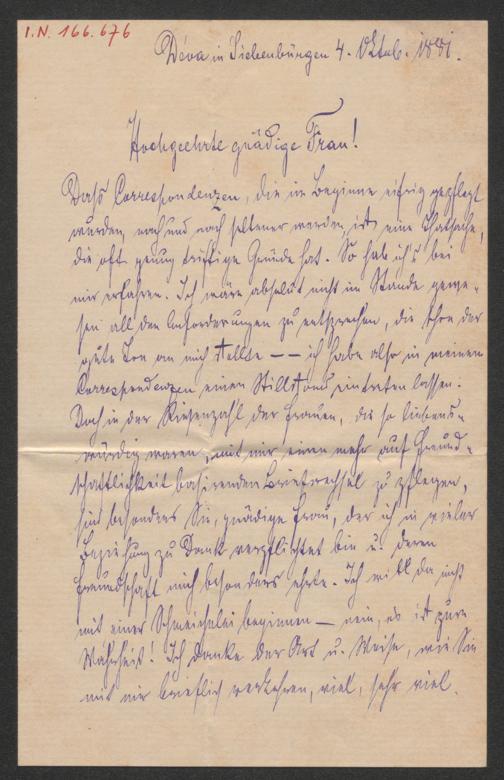 I.N. 166.676
Déva in Siebenbürgen 4. Oktob. 1891.
Hochgeehrte gnädige Frau!
Dass Correspondenzen, die im Beginne eifrig gepflegt
wurden, nach und nach seltener werden, ist eine Thatsache,
die oft genug triftige Gründe hat. So hab ich's bei
mir erfahren. Ich wäre absolut nicht im Stande gewe-
sen all den Anforderungen zu entsprechen, die schon der
gute Ton an mich stellte -- ich habe also in meinen
Correspondenzen einen Stillstand eintreten lassen.
Doch in der Riesenzahl der Frauen, die so liebens-
würdig waren, mit mir einen mehr auf Freund-
schaftlichkeit basirenden Briefwechsel zu pflegen,
sind besonders Sie, gnädige Frau, der ich in vieler
Beziehung zu Dank verpflichtet bin u. deren
Freundschaft mich besonders ehrte. Ich will da nicht
mit einer Schmeichelei beginnen — nein, es ist pure
Wahrheit! Ich danke der Art u. Weise, wie Sie
mit mir brieflich verkehren, viel, sehr viel.